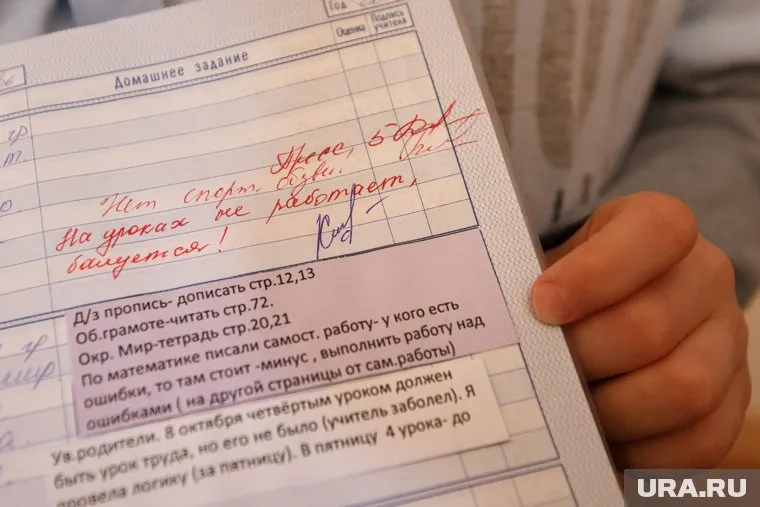 Год
Домашнее задание
Оценка
Подпись учителя
Пресс, 5
Нет спорт. обуви.
На уроках не работает,
балуется!
Д/з пропись- дописать стр.12,13
Об.грамоте-читать стр.72.
Окр. Мир-тетрадь стр.20,21
По математике писали самост. работу- у кого есть
ошибки, то там стоит -минус , выполнить работу над
ошибками ( на другой страницы от сам.работы)
Ув.родители. 8 октября четвёртым уроком должен
быть урок труда, но его не было (учитель заболел). Я
провела логику (за пятницу). В пятницу 4 урока- до
URA.RU